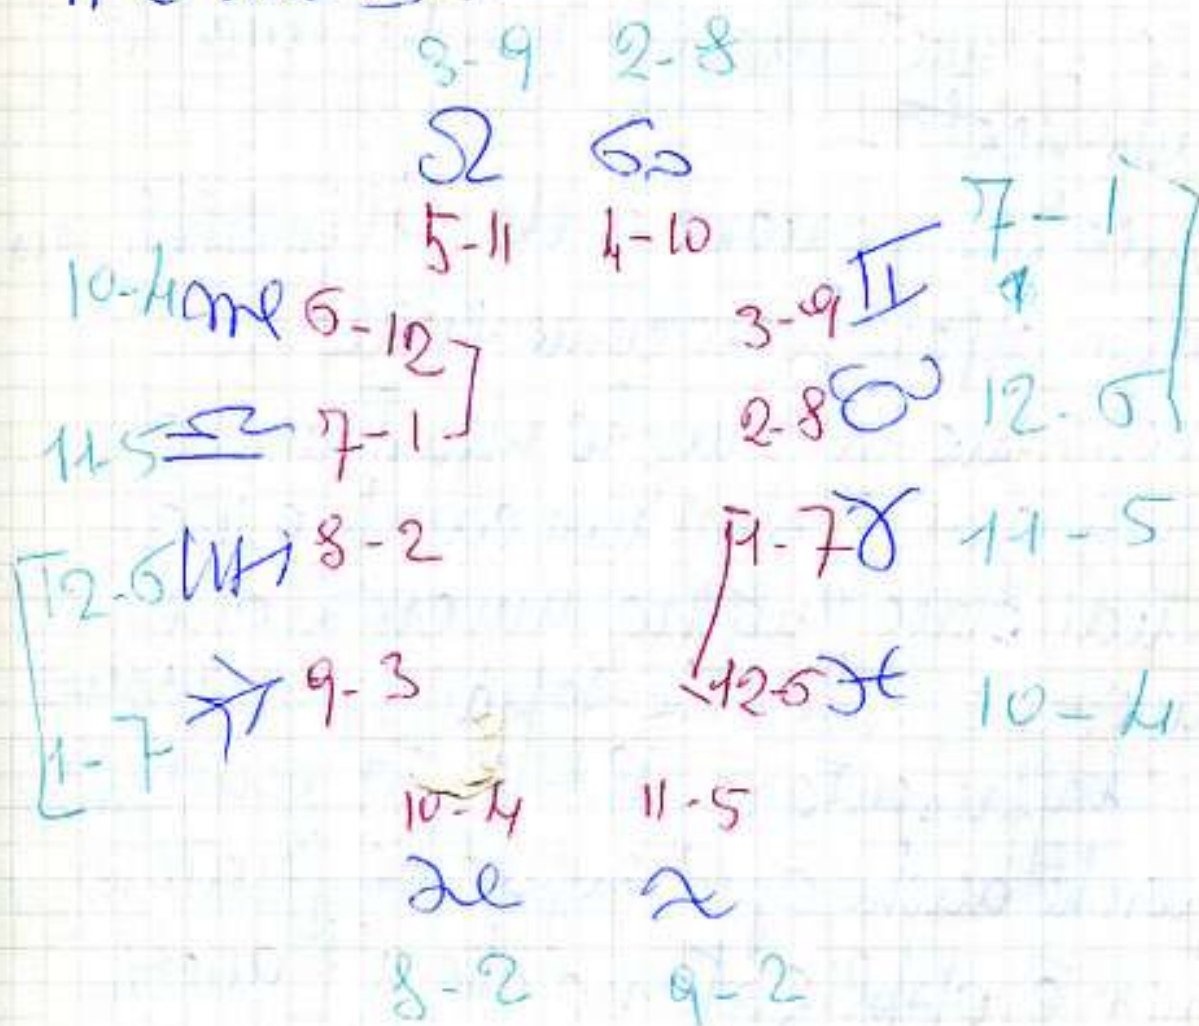 3-9 2-8
♌ ♋
5-11 4-10
7-1
10-4 ♍ 6-12
3-9 ♊
11-5 ♎ 7-1
2-8 ♉ 12-6
12-6 ♏ 8-2
1-7 ♈ 11-5
1-7 ♐ 9-3
12-6 ♓ 10-4
10-4 11-5
♑ ♒
8-2 9-2